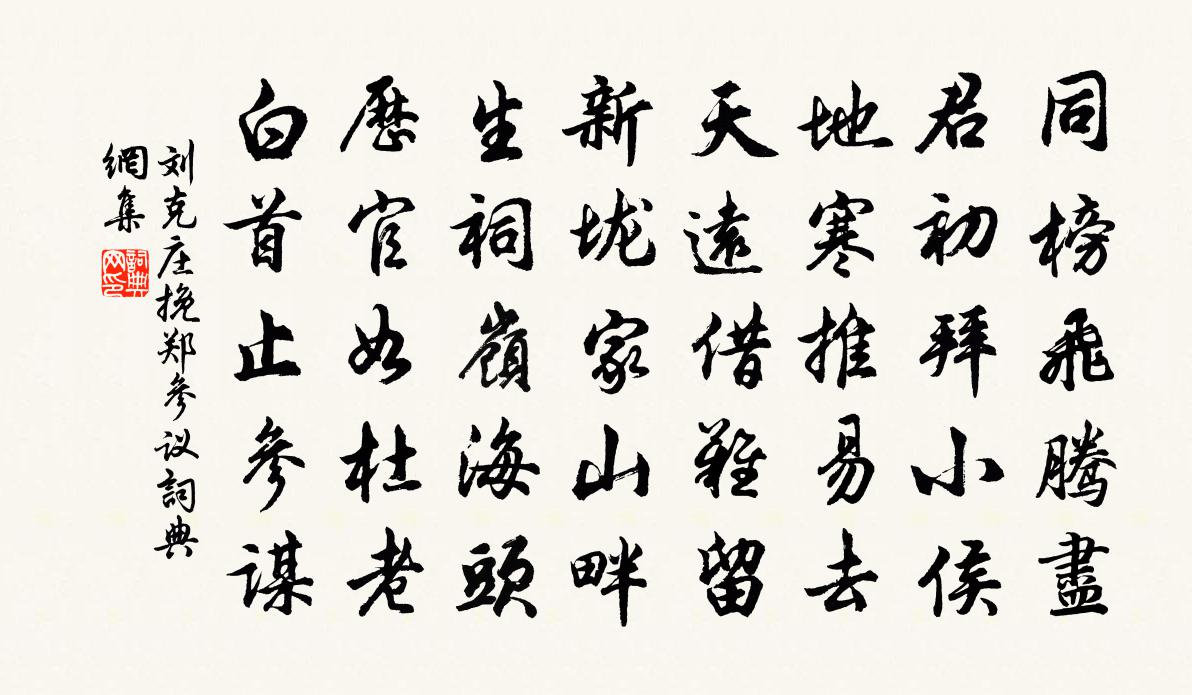 同榜飛騰盡
君初拜小侯
地寒推易去
天遠借難留
新垅家山畔
生祠嶺海頭
歷官如杜老
白首止參謀
刘克庄挽郑參议詞典
網集
詞典网印